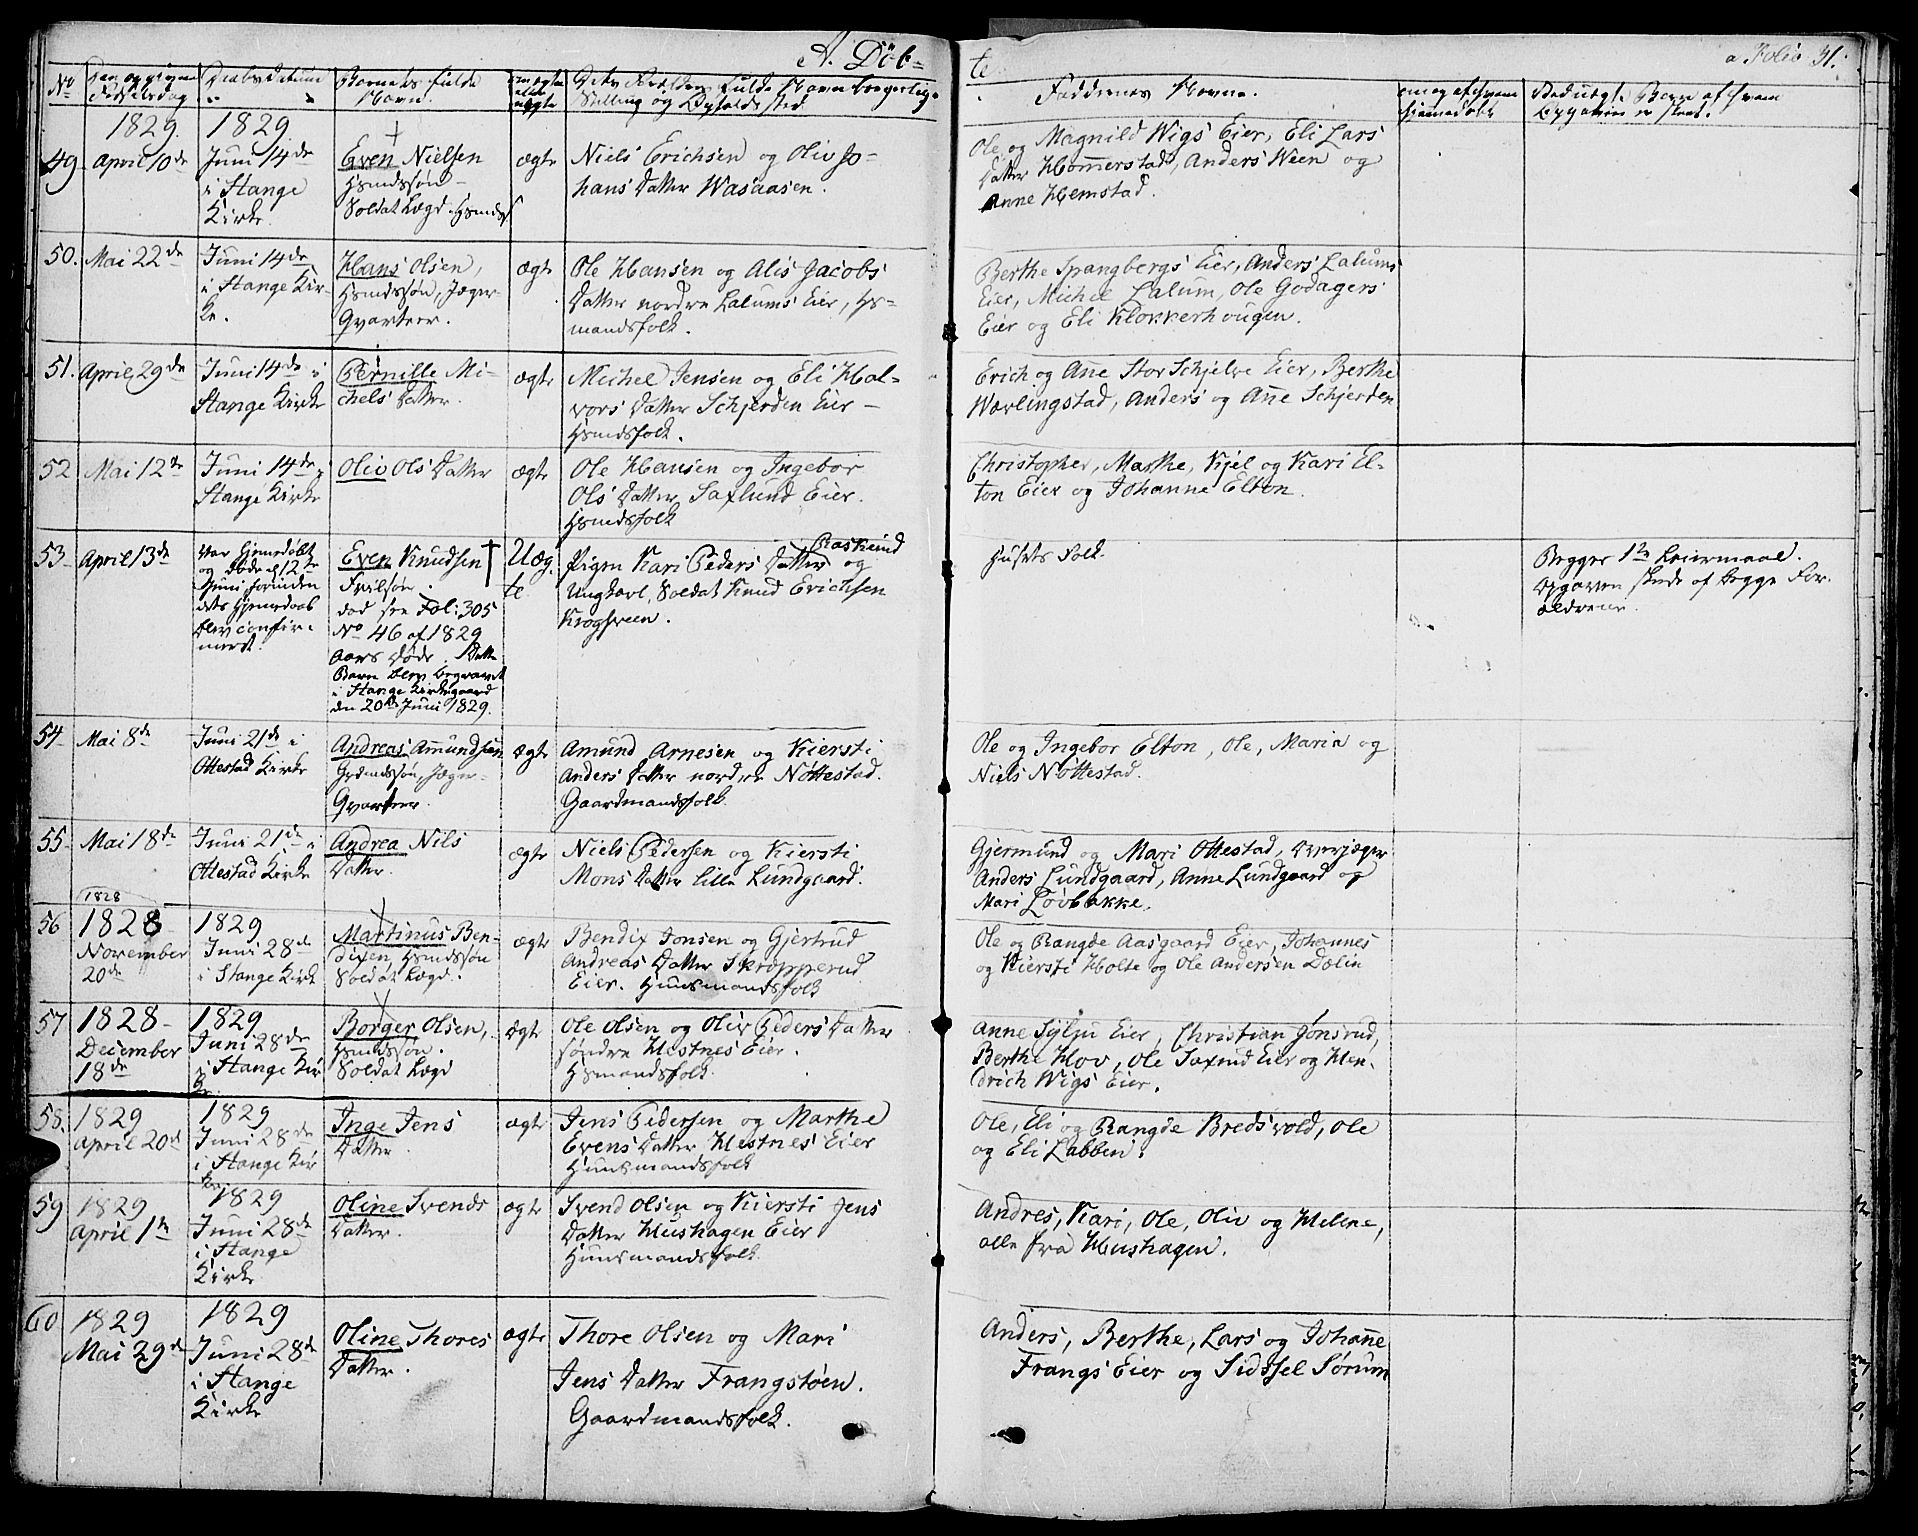 A. Döb-
te
a Folio 31.
No
Fødselsdag
Daabs Datum
Barnets fulde
Navn.
ægte
eller
uægte
Stilling og Opholdssted
Faddernes Navne.
1829.
1829.
49
April 10de
Juni 14de
i Stange
Kirke
Even Nielsen
Hsmdssøn
Soldat Lægd.
ægte
Niels Erichsen og Oliv Jo-
hans Datter Wasaasen.
Ole og Magnild Wigs Eier, Eli Lars
Datter Hommerstad, Anders Ween og
Anne Hemstad.
50.
Mai 22de
Juni 14de
i Stange Kir-
ke.
Hans Olsen,
Hsmdssøn, Jæger-
Qvarteer.
ægte
Ole Hansen og Alis Jacobs
Datter nordre Lalums Eier, Hs-
mandsfolk.
Berthe Spangbergs Eier, Anders Lalums
Eier, Michel Lalum, Ole Godagers
Eier og Eli Klokkerhougen.
51.
April 29de
Juni 14de i
Stange Kirke
Pernille Mi-
chels Datter.
ægte
Michel Jensen og Eli Hal-
vors Datter Schjerden Eier -
Hsmdsfolk.
Erich og Ane Stor Schjelve Eier, Berthe
Wærlingstad, Anders og Anne Schjerden
52
Mai 12te
Juni 14de
Stange Kirke
Oliv Ols Datter
ægte
Ole Hansen og Ingebor
Ols Datter Saxlund Eier.
Hsmdsfolk
Christopher, Marthe, Kjel og Kari El-
ton Eier og Johanne Elton.
53
April 13de
Var hjemedøbt
og døde d 12te
Juni forinden
dets hjemedaab
blev confir-
meret.
Even Knudsen †
død see Fol: 305
No 46 af 1829
Aars Døde. Dette
Barn blev begravet
i Stange Kirkegaard
den 20de Juni 1829.
Uæg-
te
Pigen Kari Peders Datter Raskrud og
Ungkarl, Soldat Knud Erichsen
Krogsveen.
Husets Folk.
Begges 1te Leiermaal.
Opgaven skede af begge For-
ældrene.
54
Mai 8de
Juni 21de i
Ottestad Kirke
Andreas Amundsen
Grdmdssøn, Jæger-
Qvarteer.
ægte
Amund Arnesen og Kiersti
Anders Datter nordre Nøttestad.
Gaardmandsfolk.
Ole og Ingebor Elton, Ole, Maria og
Niels Nøttestad.
55
Mai 18de
Juni 21de i
Ottestad Kirke
Andrea Nils
Datter.
ægte
Niels Pedersen og Kiersti
Mons Datter lille Lundgaard.
Gjermund og Mari Ottestad, Overjæger
Anders Lundgaard, Anne Lundgaard og
Mari Løvbakke.
1828
56
1828
November
20de
1829
Juni 28de
i Stange Kirke
Martinus Ben-
dixen Hsmdssøn
Soldat Lægd.
ægte
Bendix Jonsen og Gjertrud
Andreas Datter Skrapperud
Eier. Huusmandsfolk
Ole og Rangde Aasgaard Eier, Johannes
og Kiersti Holte og Ole Andersen Dælin
57
1828-
December
18de
1829
Juni 28de
i Stange Kir
ke
Borger Olsen,
Hsmdssøn.
Soldat Lægd
ægte
Ole Olsen og Oliv Peders Datter
søndre Hestnes Eier.
Hsmandsfolk.
Anne Sylju Eier, Christian Jønsrud,
Berthe Hov, Ole Saxrud Eier og Hen-
drich Wigs Eier.
58.
1829
April 20d
1829
Juni 28de
i Stange Kir
ke
Inge Jens
Datter.
ægte
Jens Pedersen og Marthe
Evens Datter Hestnes Eier
Huusmandsfolk
Ole, Eli og Rangde Bredsvold, Ole
og Eli Labbin.
59
1829
April 1te
1829
Juni 28de
i Stange
Kirke
Oline Svends
Datter.
ægte
Svend Olsen og Kiersti Jens
Datter Hushagen Eier
Huusmandsfolk.
Andres, Kari, Ole, Oliv og Helene,
alle fra Hushagen.
60
1829
Mai 29d
1829
Juni 28de
i Stange
Kirke
Oline Thores
Datter.
ægte
Thore Olsen og Mari
Jens Datter Frangstøen.
Gaardmandsfolk.
Anders, Berthe, Lars og Johanne
Frangs Eier og Sidsel Sørum